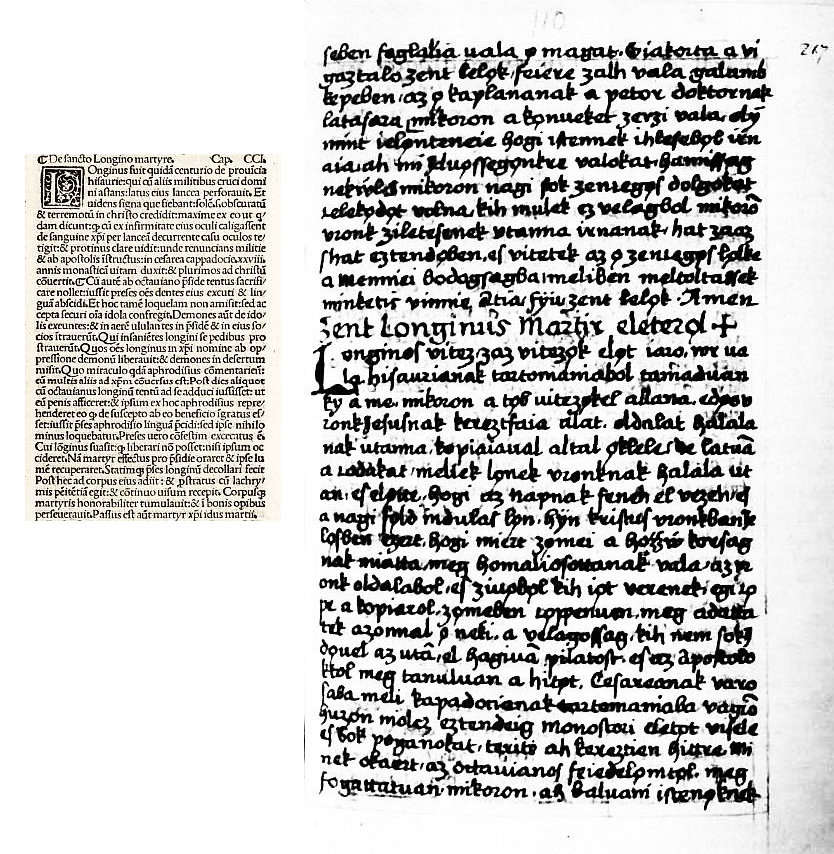 ☾De sancto Longino martyre. Cap. CCI.
LOnginus fuit quidã centurio de prouĩcia
hisaurie:qui cũ aliis militibus cruci domi
ni astans:latus eius lancea perforauit. Et
uidens signa que fiebant:solẽ.s.obscuratũ
& terremotũ in christo credidit:maxime ex eo ut q̃
dam dicunt:q̃ cũ ex infirmitate eius oculi caligassent
de sanguine xp̃i per lanceã decurrente casu oculos te/
tigit:& protinus clare uidit:unde renuncians militie
& ab apostolis ĩstructus:in cesarea cappadocie.xxviii.
annis monasticã uitam duxit:& plurimos ad christũ
cõuertit.☾Cũ autẽ ab octauiano p̃side tentus sacrifi/
care nollet:iussit preses oẽs dentes eius excuti & lin/
guã abscidi.Et hoc tamẽ loquelam non amisit:sed ac
cepta securi oĩa idola confregit.Demones aũt de ido/
lis exeuntes:& in aerẽ ululantes in p̃sidẽ & in eius so/
cios ĩtrauerũt.Qui insanĩẽtes longini se pedibus pro
strauerũt.Quos oẽs longinus in xp̃i nomine ab op/
pressione demonũ liberauit:& demones in desertum
misit.Quo miraculo quidã aphrodisius cõmentariẽn:
cũ multis aliis ad xp̃m cõuersus est.Post dies aliquot
cũ octauianus longinũ tentũ ad se adduci iussisset: ut
eũ penis afficeret:& ipsum ex hoc aphrodisius repre/
henderet eo q̃ de suscepto ab eo beneficio ĩgratus es/
set:iussit p̃ses aphrodisio linguã p̃cidi:sed ipse nihilo
minus loquebatur.Preses uero cõfestim excecatus ẽ.
Cui lõginus suasit:q̃ liberari nõ posset:nisi ipsum oc
cideret.Nã martyr effectus pro p̃side oraret & ipse lu
mẽ recuperaret.Statimq̃ p̃ses longinũ decollari fecit
Post hec ad corpus eius adiit:& p̃stratus cũ lachry/
mis pẽitẽtiã egit:& cõtinuo uisum recepit.Corpusq̃
martyris honorabiliter tumulauit:& ĩ bonis opibus
perseuerauit.Passus est aũt martyr xp̃i idus martii.
110
217
seben foglalia uala o magat
gaztalo zent lelok, feiere zalh vala galamb
kepeben, az o kaplananak a petor doktornak
latasara mikoron a konueket zerzi vala
mint ielonteneie hogi istennek ihlesebol
valokat
mikoron nagi sok zentegos dolgokat
volna, kih mulek ez velagbol
vronk ziletesenek vtanna
eztendoben, es vitetek az o zentegos
a menniei bodagsagba, meliben
mnketis vinnie, Atia, fyw zent lelok. Amen
Zent Longinus Martir eleterol +
Longinos vitez, az vitezok elot iaro,
la hisaurianak tartomaniabol tamaduan
ky a me, mikoron a tob uitezokel allana,
zonk Jesusnak kereztfaia alat, oldalat halala
nak utanna, kopiaiaual altal
a rodakat, meliek lonek vronknak halala ut
an, es elotte, hogi az napnak
a nagi fold indulas lon, hyn kristus vronkbank
ezert, hogi miert zomei a
nak miatta, meg homaliosottanak vala, az
onk oldalabol, es ziuobol kih iot verenek,
a kopiarol, zomeben
tek azonnal o neki, a velagossag, kih nem
az utã, el hagiuã pilatost, es az apostolo
ktol meg tanuluan a hitot, Cesareanak varo
saba meli kapadocianak tartomaniaba vagiõ
huzon molcz eztendeig monostori eletot visele
es sok poganokat, terite ah kereztien hitre, Mi
nek okaert, az octauianos feiedelomtol, meg
fogattatuan, mikoron, ah baluani istenoknek